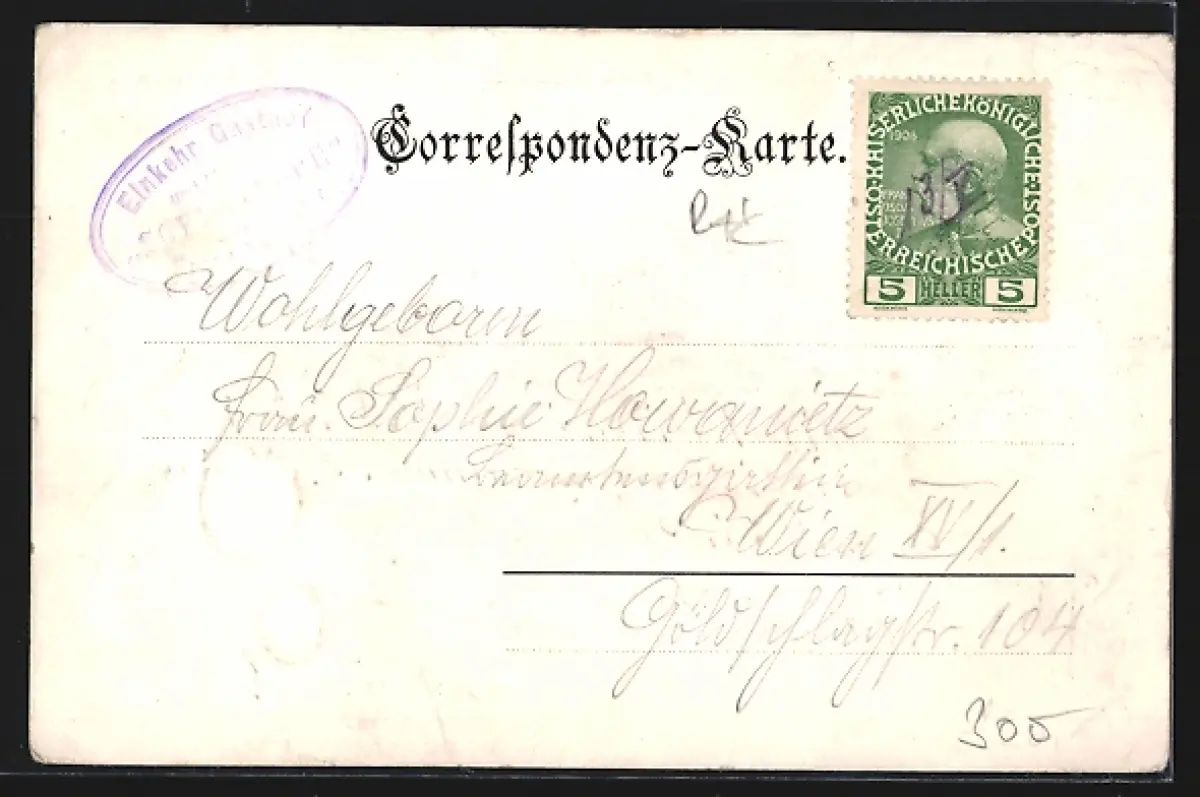 Einkehr Gasthof
Correspondenz-Karte.
KAISERLICHE KÖNIGLICHE ÖSTERREICHISCHE POST
1908
5 HELLER 5
Wohlgeboren
Frau Sophie Howanietz
Wien XV/1.
Goldschlagstr. 104
300